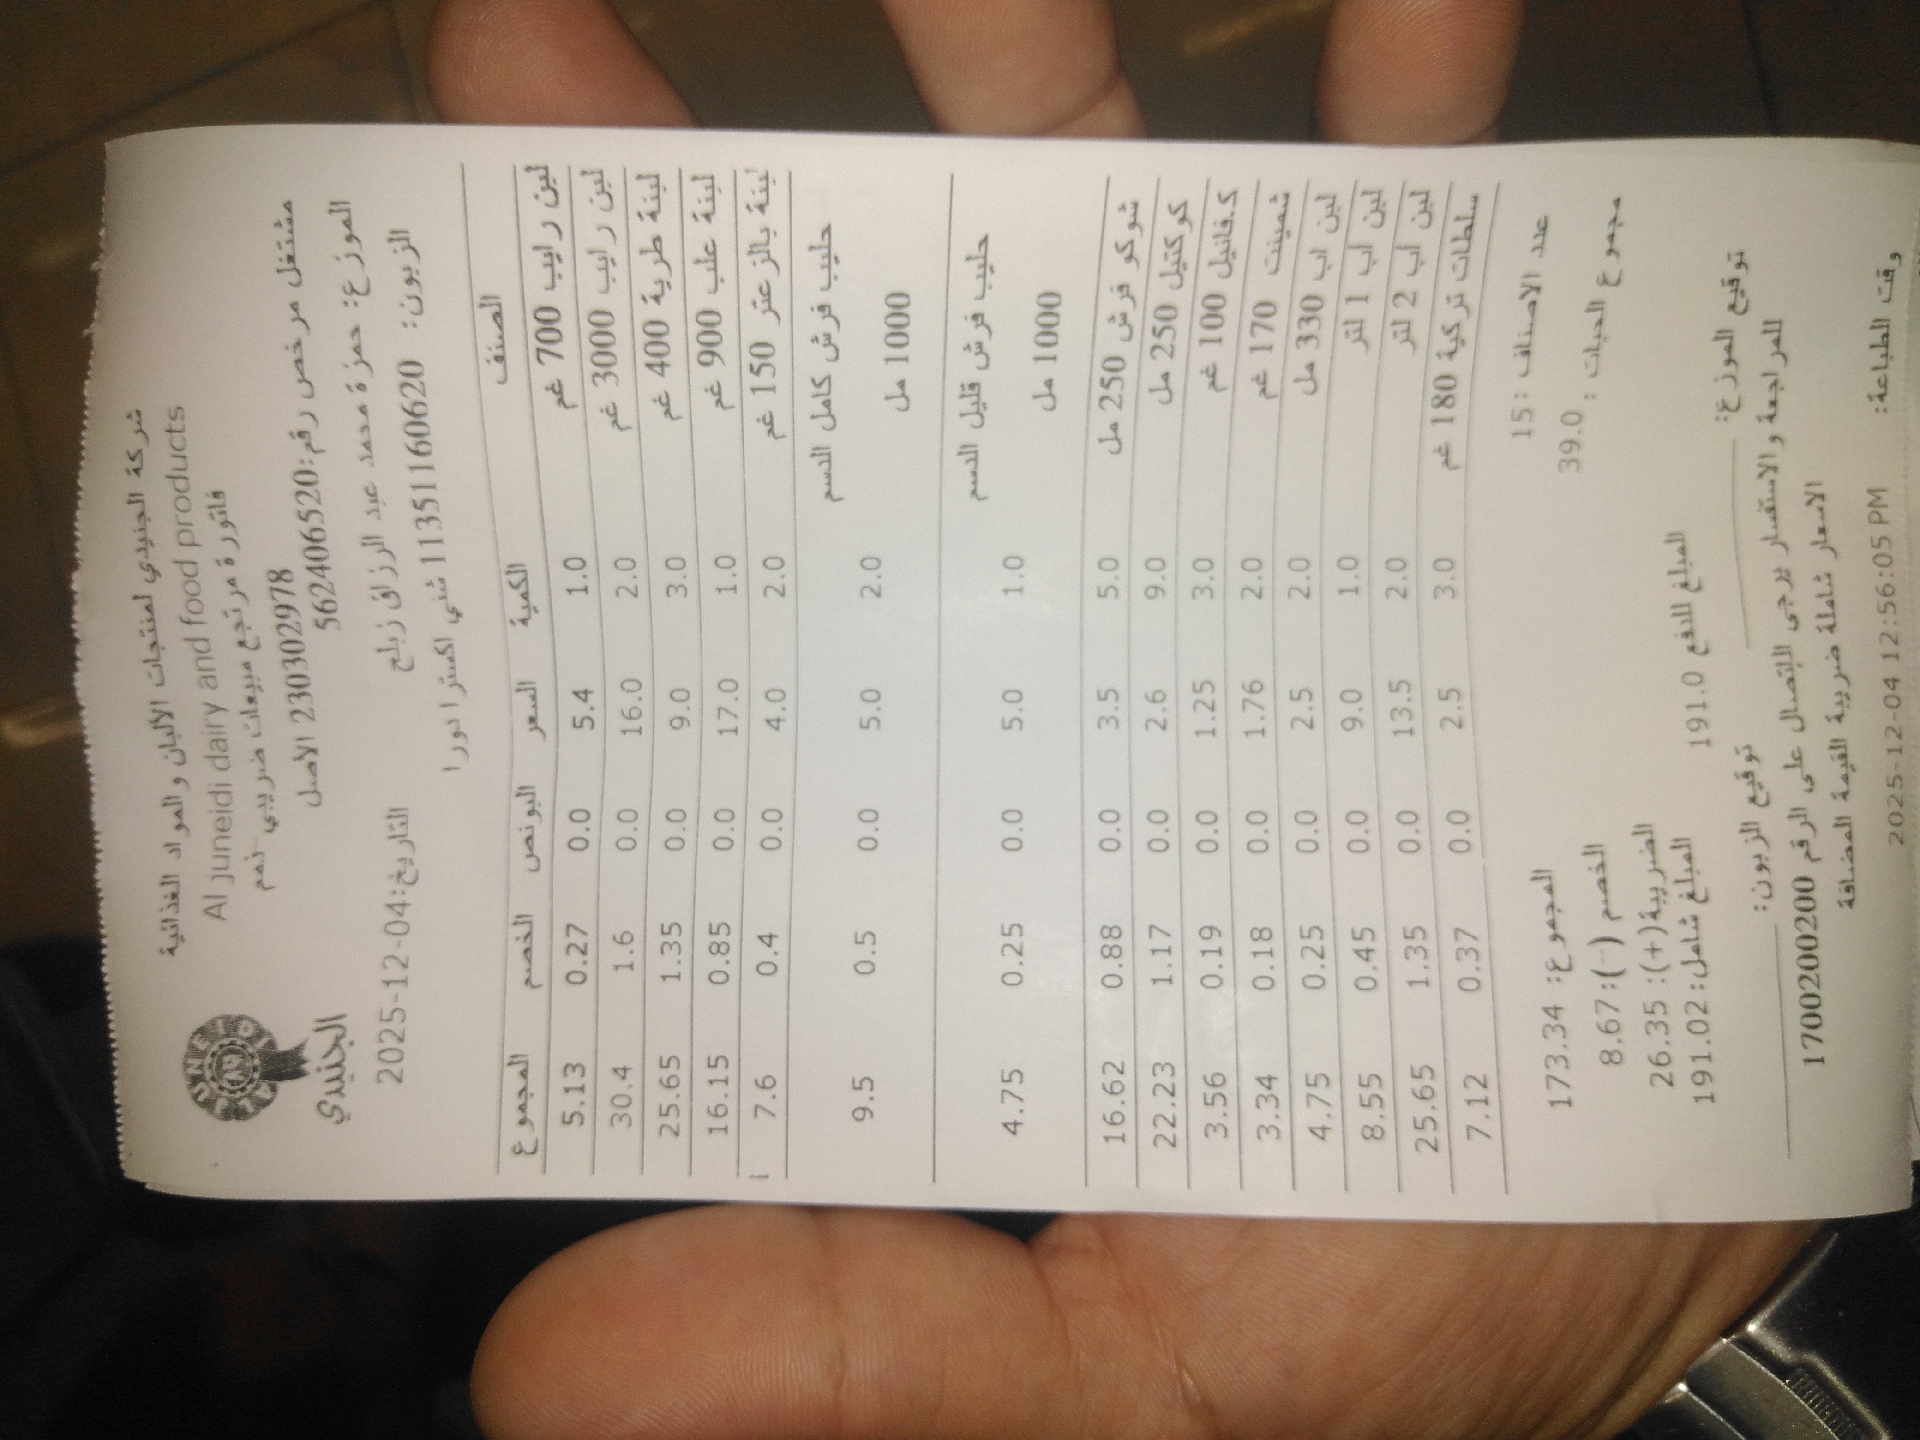 شركة الجنيدي لمنتجات الالبان و المواد الغذائية
Al juneidi dairy and food products
JUNEIDI
الجنيدي
فاتورة مرتجع مبيعات ضريبي -ذمم
230302978 الأصل
مشتغل مرخص رقم:562406520
الموزع: حمزة محمد عبد الرزاق زبلح
التاريخ:2025-12-04
الزبون: 11351160620 شني اكسترا دورا
الصنف الكمية السعر البونص الخصم المجموع
لبن رايب 700 غم 1.0 5.4 0.0 0.27 5.13
لبن رايب 3000 غم 2.0 16.0 0.0 1.6 30.4
لبنة طرية 400 غم 3.0 9.0 0.0 1.35 25.65
لبنة علب 900 غم 1.0 17.0 0.0 0.85 16.15
لبنة بالزعتر 150 غم 2.0 4.0 0.0 0.4 7.6
حليب فرش كامل الدسم 2.0 5.0 0.0 0.5 9.5
1000 مل
حليب فرش قليل الدسم 1.0 5.0 0.0 0.25 4.75
1000 مل
شوكو فرش 250 مل 5.0 3.5 0.0 0.88 16.62
كوكتيل 250 مل 9.0 2.6 0.0 1.17 22.23
ك.فانيل 100 غم 3.0 1.25 0.0 0.19 3.56
شمينت 170 غم 2.0 1.76 0.0 0.18 3.34
لبن اب 330 مل 2.0 2.5 0.0 0.25 4.75
لبن اب 1 لتر 1.0 9.0 0.0 0.45 8.55
لبن اب 2 لتر 2.0 13.5 0.0 1.35 25.65
سلطات تركية 180 غم 3.0 2.5 0.0 0.37 7.12
عدد الاصناف :15 المجموع: 173.34
مجموع الحبات : 39.0 الخصم (-):8.67
الضريبة(+): 26.35
المبلغ للدفع 191.0 المبلغ شامل:191.02
توقيع الموزع: توقيع الزبون:
للمراجعة والاستفسار يرجى الاتصال على الرقم 1700200200
الاسعار شاملة ضريبة القيمة المضافة
وقت الطباعة: 2025-12-04 12:56:05 PM